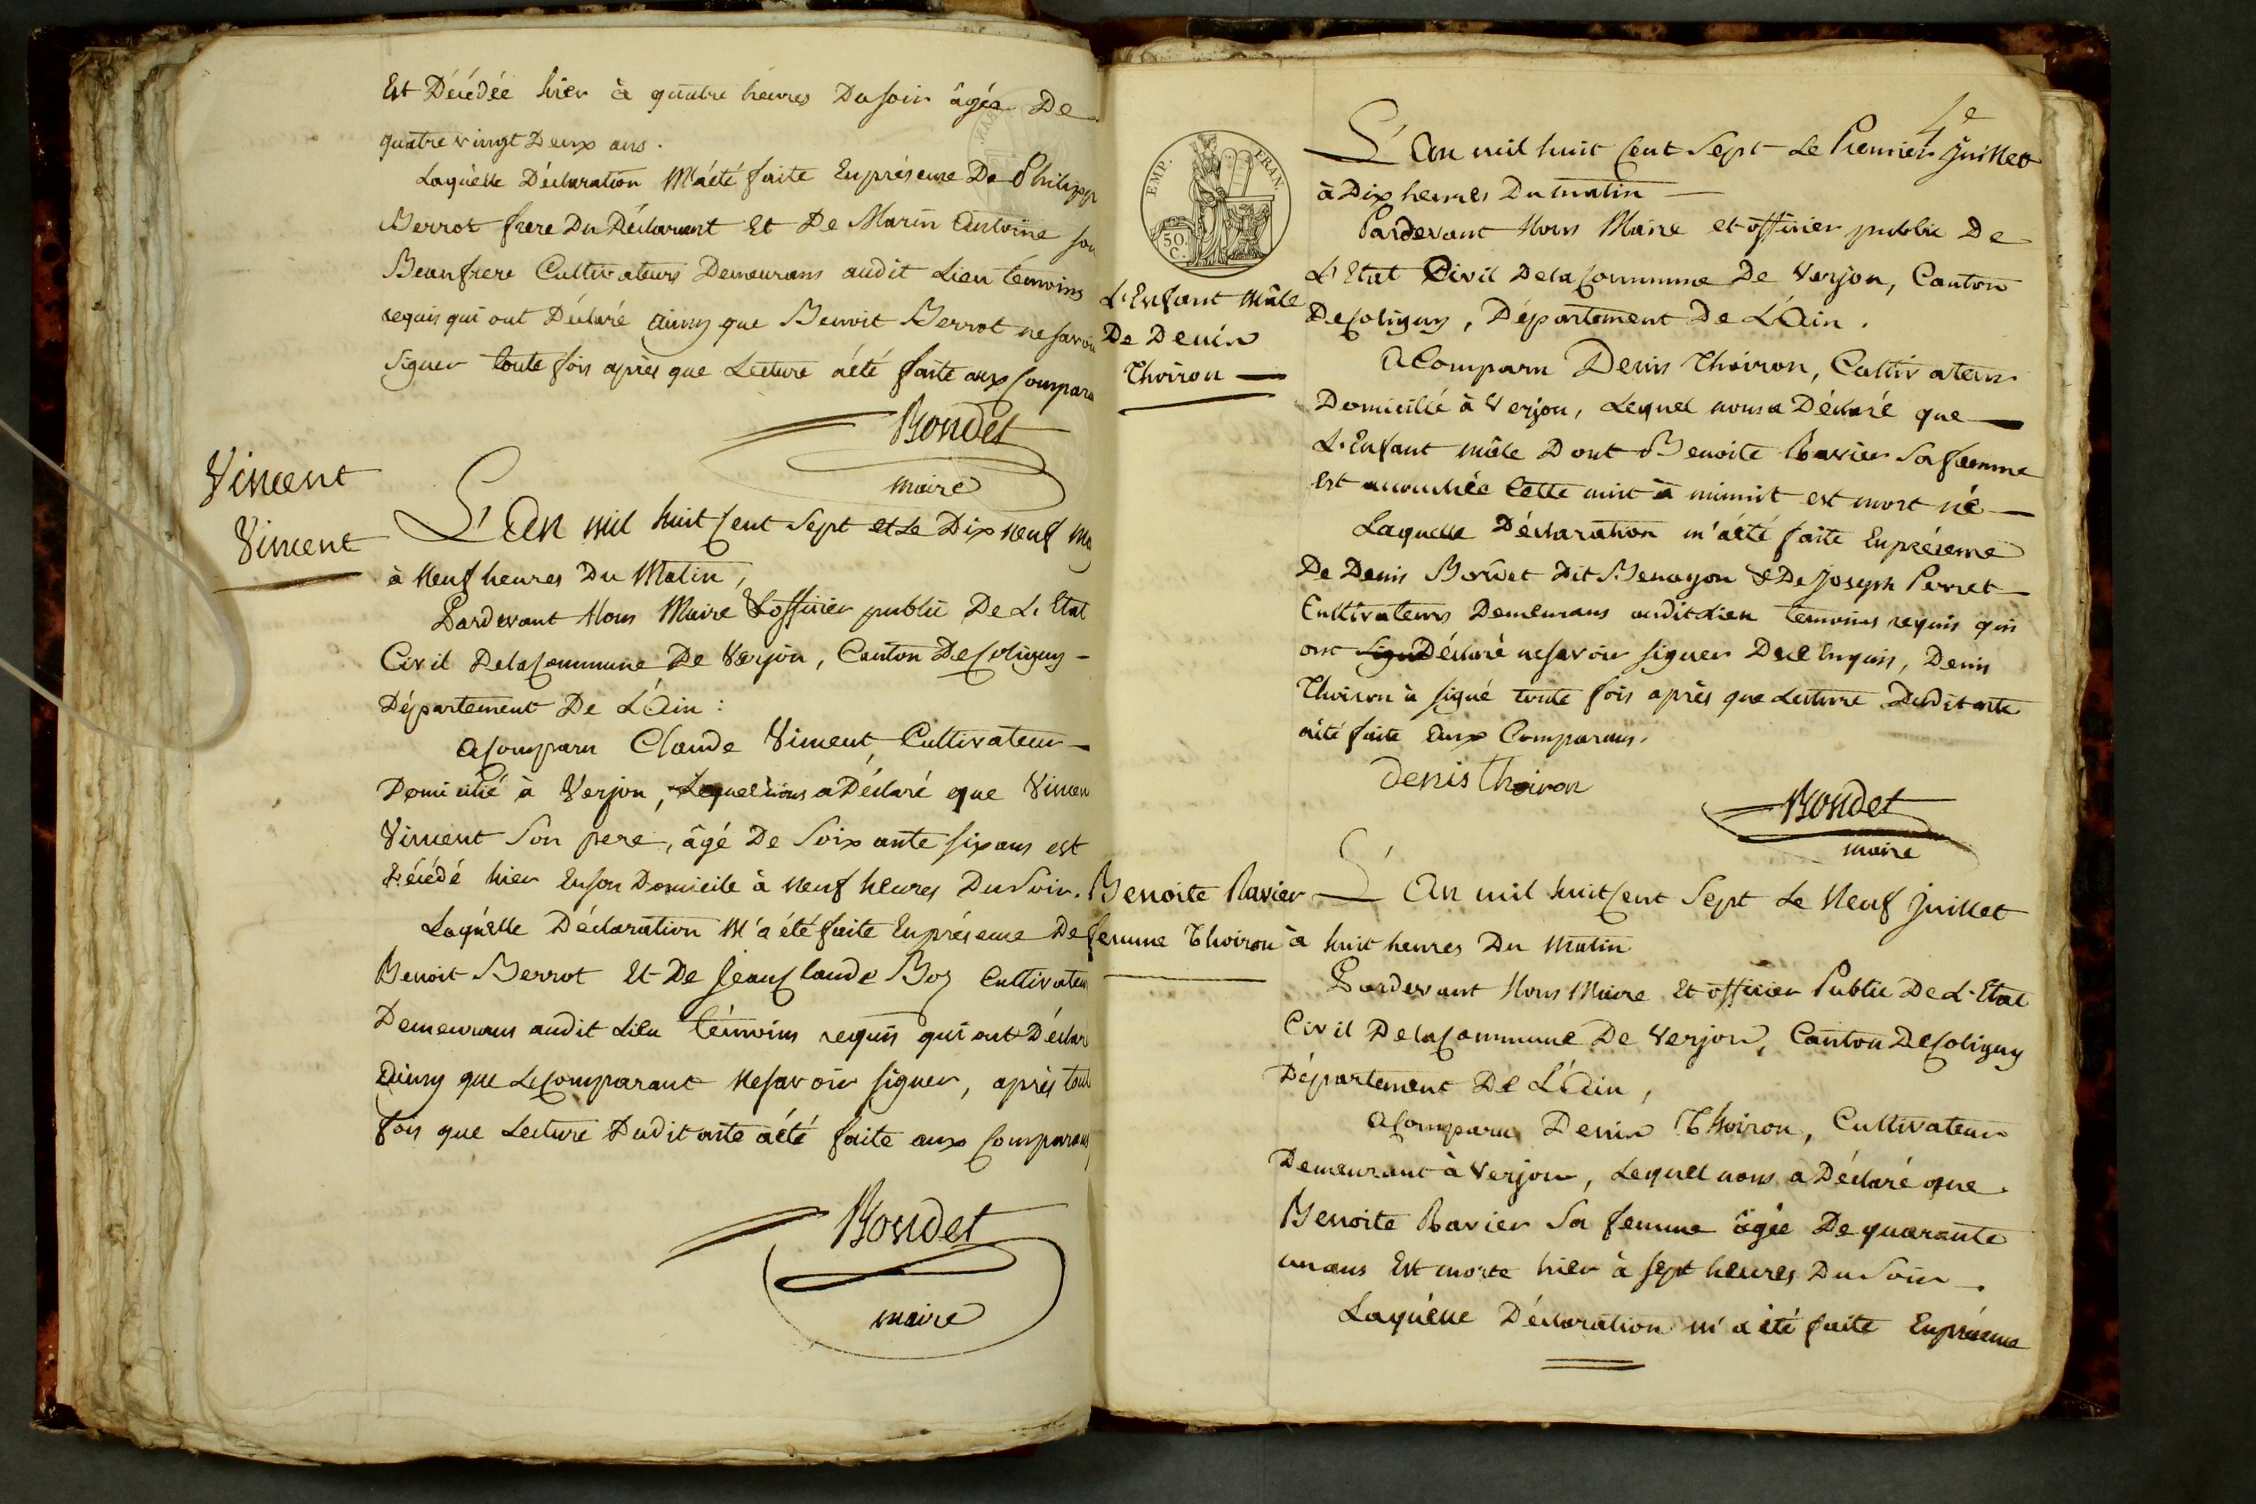 Est Décédée hier à quatre heures Du soir âgée De
quatre vingt Deux ans.
Laquelle Déclaration M'a été faite En présence De Philipp
Berrot frere Du Déclarant Et De Marin Antoine son
Beaufrere Cultivateurs Demeurans audit Lieu témoins
requis qui ont Déclaré ainsy que Benoit Berrot ne savoir
signer toute fois après que Lecture a été faite aux Compara
Bondet
maire
Vincent
Vincent
L'An mil huit Cent Sept et Le Dix neuf ma
à Neuf heures Du Matin,
Pardevant Nous Maire & officier public De L'Etat
Civil De la Commune De Verjon, Canton De Coligny -
Département De L'Ain :
A Comparu Claude Vincent, Cultivateur -
Domicilié à Verjon, Lequel nous a Déclaré que Vincen
Vincent Son pere, âgé De Soixante six ans est
Décédé hier En son Domicile à neuf heures Du Soir.
Laquelle Déclaration M'a été faite En présence De
Benoit Berrot Et De Jean Claude Boz Cultivateu
Demeurans audit Lieu témoins requis qui ont Déclar
ainsy que Le Comparant ne savoir signer, après tout
fois que Lecture Dudit acte a été faite aux Comparans
Bondet
maire
4e
EMP. FRAN.
50 C.
L'Enfant mâle
De Denis
Thoiron —
L'An mil huit Cent Sept Le Premier Juillet
à Dix heures Du matin —
Pardevant Nous Maire et officier public De
L'Etat Civil De la Commune De Verjon, Canton
De Coligny, Département De L'Ain.
A Comparu Denis Thoiron, Cultivateur
Domicilié à Verjon, Lequel nous a Déclaré que —
L'Enfant mâle Dont Benoite Ravier Sa femme
Est accouchée Cette nuit à minuit est mort né —
Laquelle Déclaration m'a été faite En présence
De Denis Bondet Dit Benayon & De Joseph Perret —
Cultivateurs Demeurans audit Lieu temoins requis qui
ont Signé Déclaré ne savoir signer De ce Enquis, Denis
Thoiron à signé toute fois après que Lecture Dudit acte
a été faite aux Comparans.
Denis thoiron
Bondet
maire
Benoite Ravier
femme Thoiron
L'An mil huit Cent Sept Le Neuf Juillet
à huit heures Du Matin
Pardevant Nous Maire Et officier Public De L'Etat
Civil De la Commune De Verjon, Canton De Coligny
Département De L'Ain,
A Comparu Denis Thoiron, Cultivateur
Demeurant à Verjon, Lequel nous a Déclaré que
Benoite Ravier Sa femme âgée De quarante
un ans Est morte hier à sept heures Du Soir —.
Laquelle Déclaration m'a été faite En présence